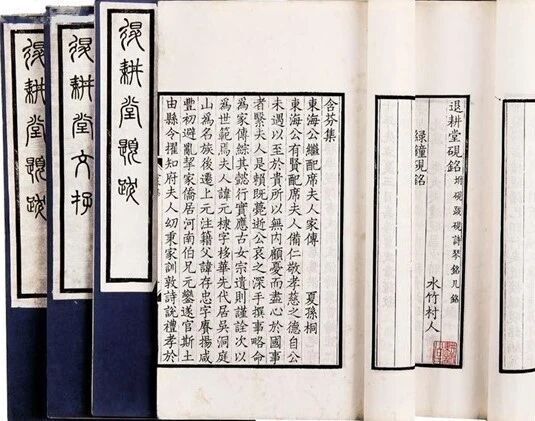 退耕堂硯銘 坿硯歌硯詩琴銘几銘
水竹村人
綠鐘硯銘
含芬集
東海公繼配席夫人家傳 夏孫桐
東海公有賢配席夫人備仁敬孝慈之德自公
未遇以至於貴所以無內顧憂而盡心於國事
者繄夫人是賴旣薨逝公哀之深手撰事略命
爲家傳綜其懿行實應古女宗遺則謹詮次以
爲世範焉夫人諱元棣字栘華先代居吳洞庭
山爲名族後遷上元注籍父諱存忠字賡揚咸
豐初避亂挈家僑居河南伯兄元鑾官斯土
由縣令擢知府夫人幼秉家訓敦詩說禮孝於
退耕堂題跋
退耕堂文存
退耕堂題跋